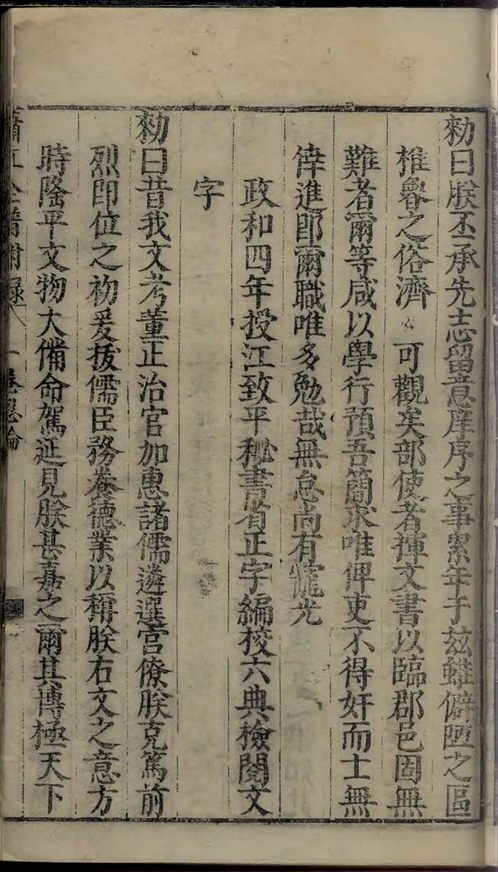 勑曰朕丕承先志留意庠序之事累年于兹雖僻陋之區
椎魯之俗濟〻可觀矣部使者揮文書以臨郡邑固無
難者爾等咸以學行預吾簡求唯俾吏不得奸而士無
倖進即爾職唯多勉哉無怠尚有寵光
政和四年授江致平秘書省正字編校六典檢閱文
字
勑曰昔我文考董正治官加惠諸儒遴選宫僚朕克篤前
烈即位之初爰拔儒臣務養德業以稱朕右文之意方
時隆平文物大備命駕延見朕甚嘉之爾其博極天下
蕭江全譜附録 一卷